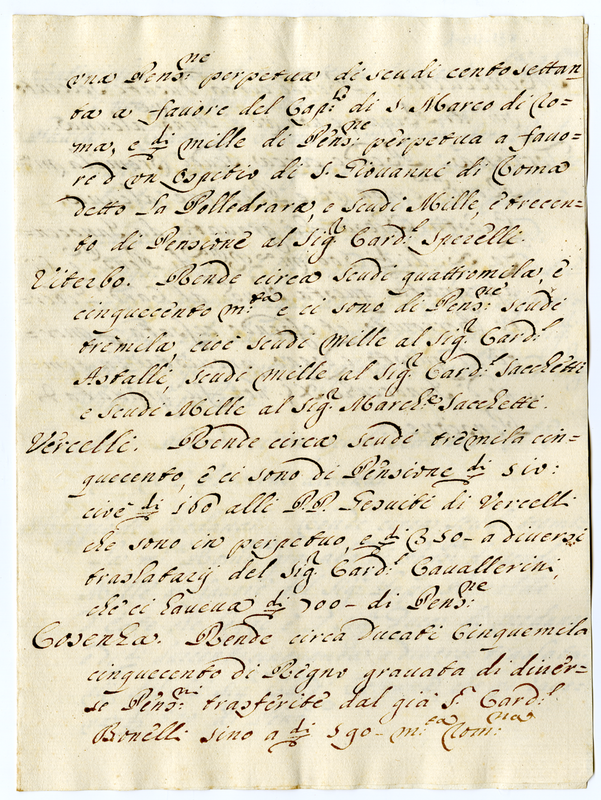 vna Pens.ne perpetua di scudi cento settan
ta a favore del Cap.lo di S. Marco di Ro=
ma, e di mille di Pens.ne perpetua a favo=
re d'un Ospitio di S. Giovanni di Roma
detto La Polledrara, e scudi Mille, e trecen=
to di Pensione al Sig.r Card.l Sperelli.
Viterbo. Rende circa scudi quattromila, e
cinquecento m.ta e ci sono di Pens.ne scudi
tremila, cioè scudi mille al Sig.r Card.l
Astalli, scudi mille al Sig.r Card.l Sacchetti
e scudi Mille al Sig.r March.e Sacchetti.
Vercelli. Rende circa scudi tremila cin=
quecento, e ci sono di Pensione di 510:
cioè di 160 alli P.P. Gesuiti di Vercelli
che sono in perpetuo, e di 350- a diversi
traslatarij del Sig.r Card.l Cavallerini,
che ci haveva di 700- di Pens.ne
Cosenza. Rende circa Ducati Cinquemila
cinquecento di Regno gravata di diver=
se Pens.ni trasferite dal già S.r Card.l
Bonelli sino a di 590- m.ta Rom.na